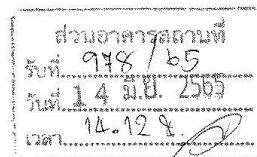 ส่วนอาคารสถานที่
รับที่ 978/65
วันที่ 14 มิ.ย. 2565
เวลา 14.12 น.